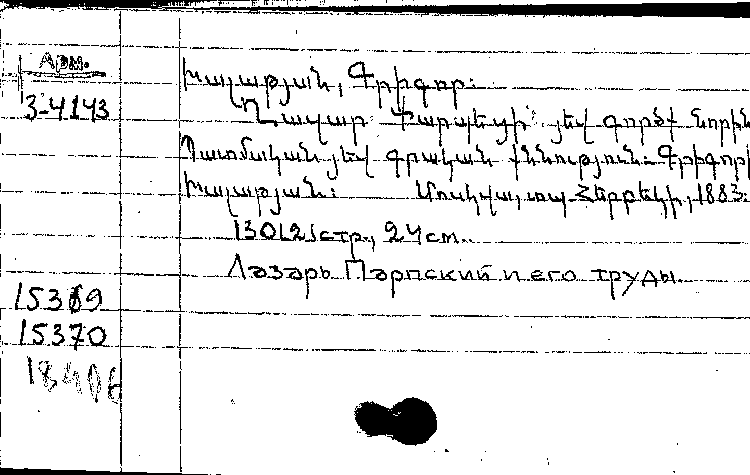 Арм.
3-4143
Խալաթյան, Գրիգոր:
Ղազար Փարպեցի յեվ գործք նորին
Պատմական յեվ գրական քննություն Գրիգորի
Խալաթյան: Մոսկվա, տպ. Հերբեկի, 1883:
130[2]стр., 24 см.
Лазарь Парпский и его труды
15369
15370
18406